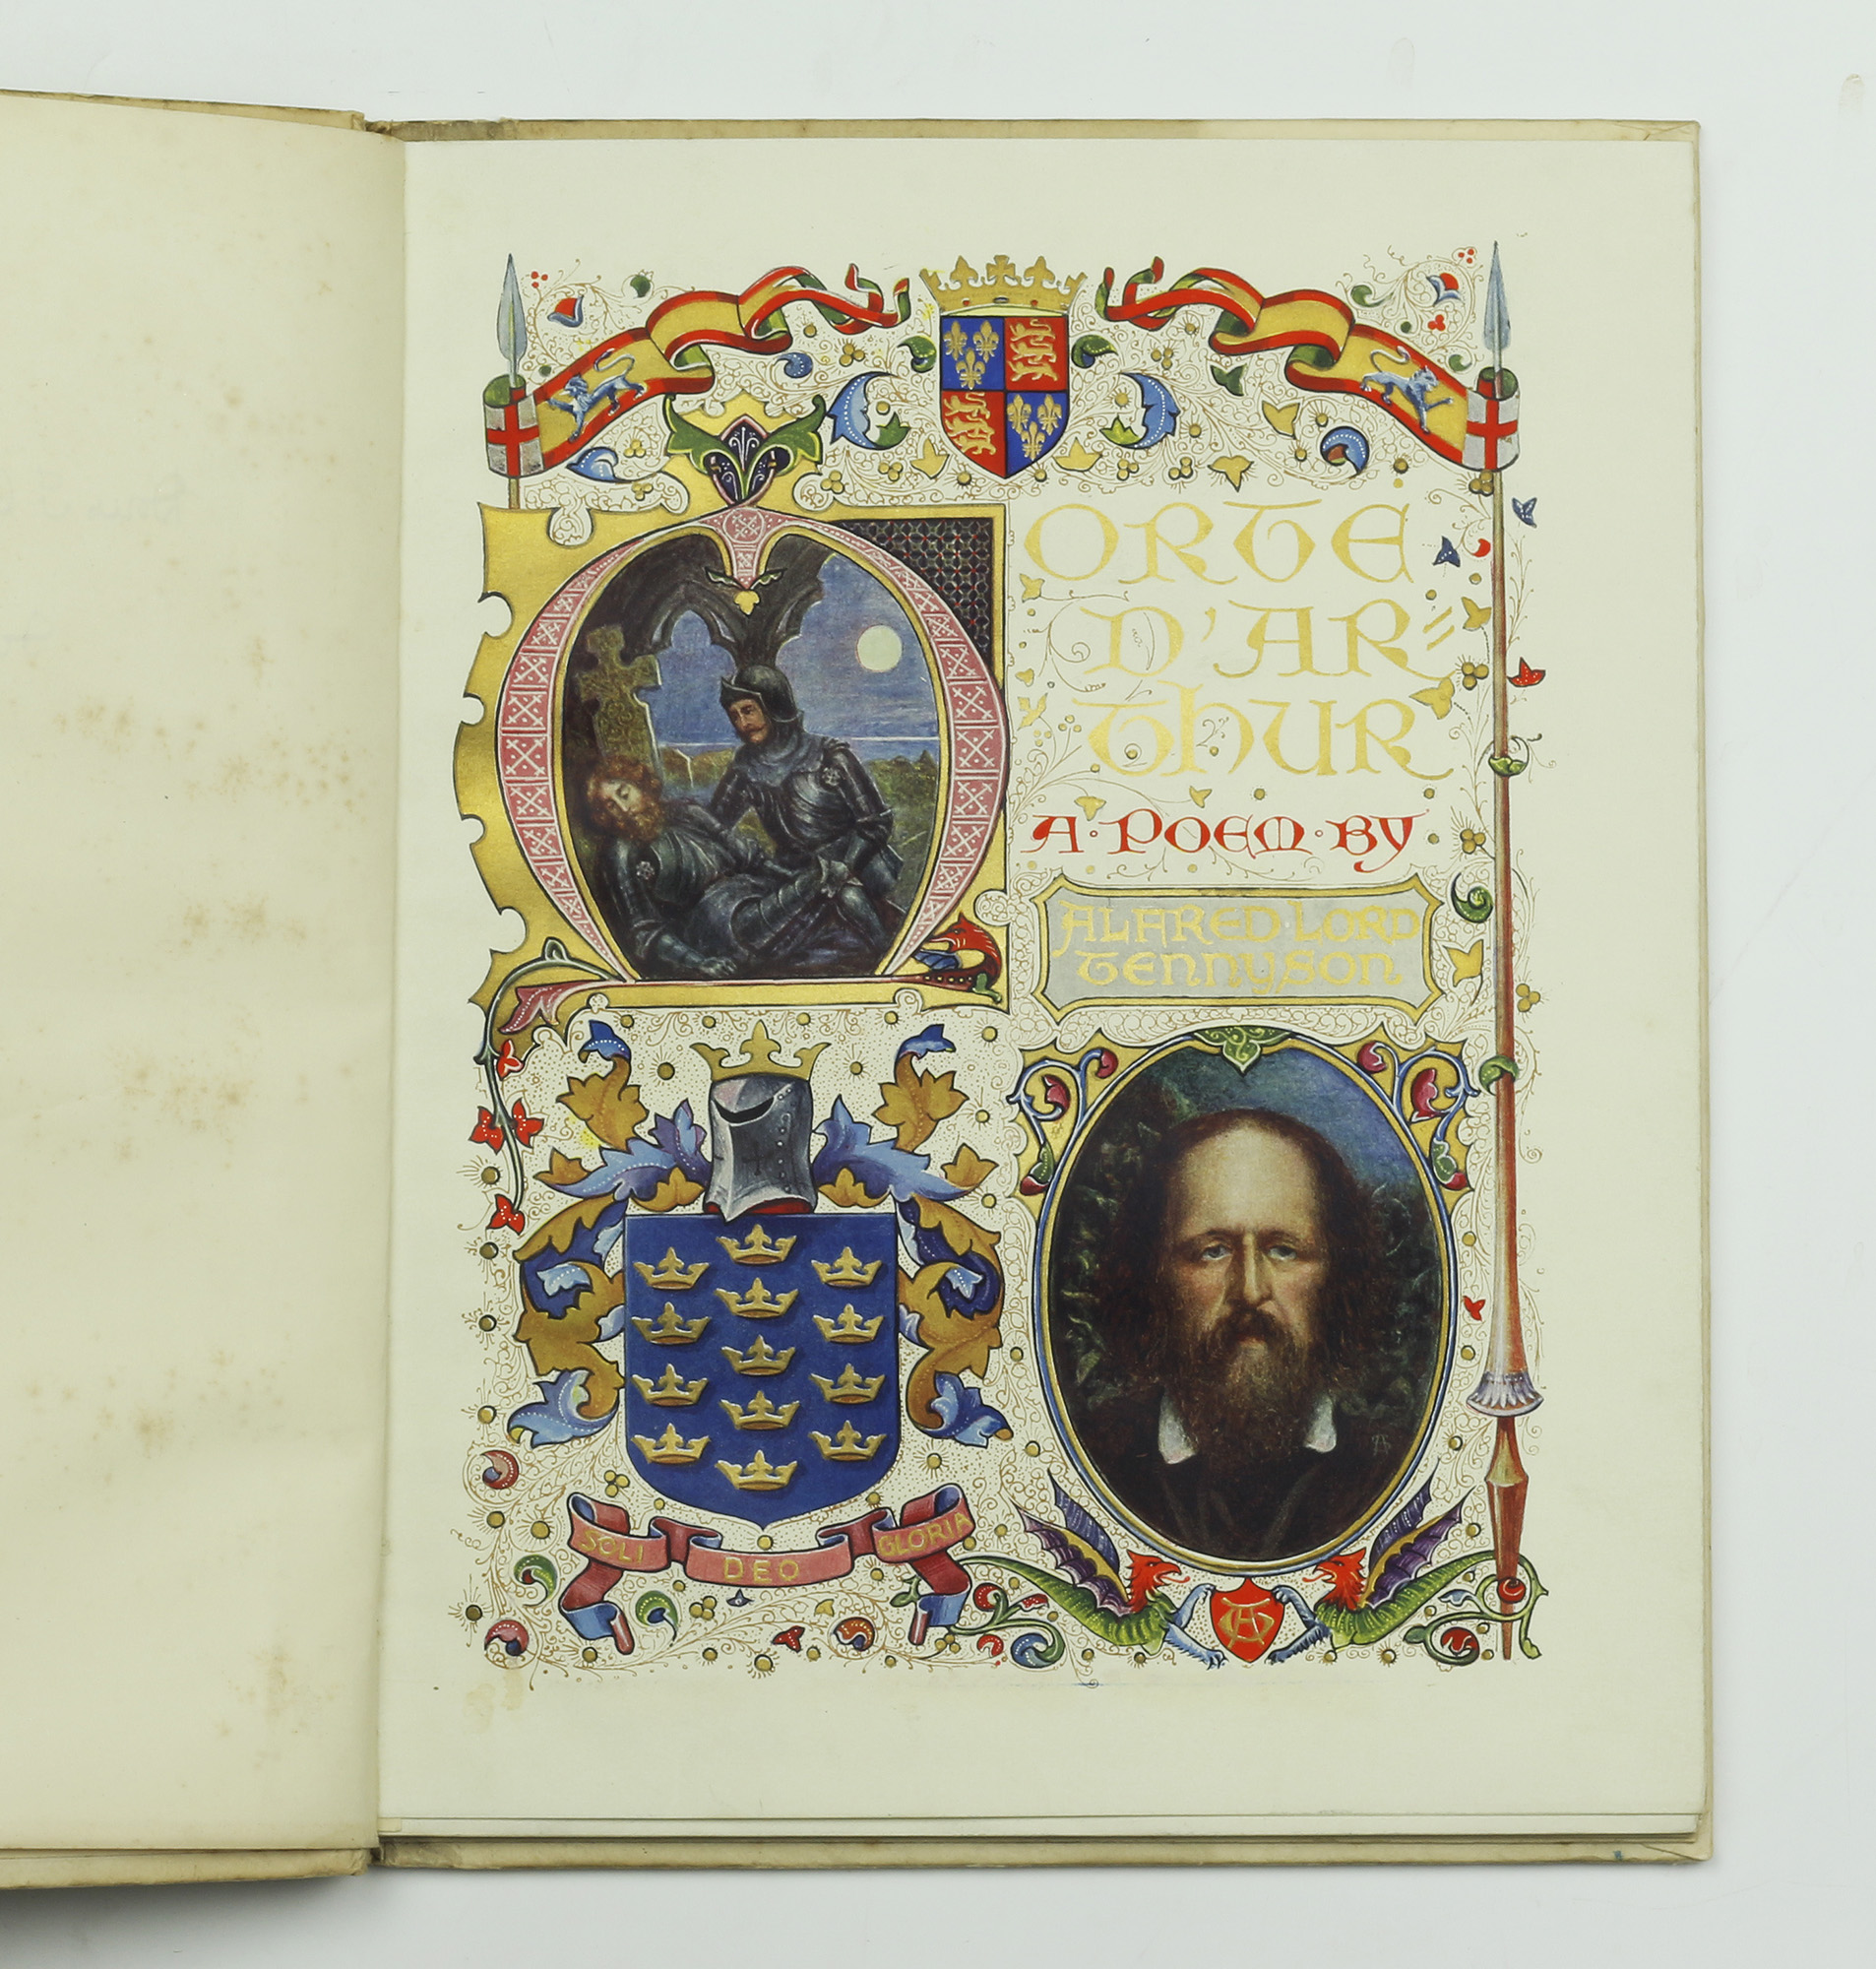 MORTE
D'AR=
THUR
A·POEM·BY
ALFRED·LORD
TENNYSON
SOLI DEO GLORIA